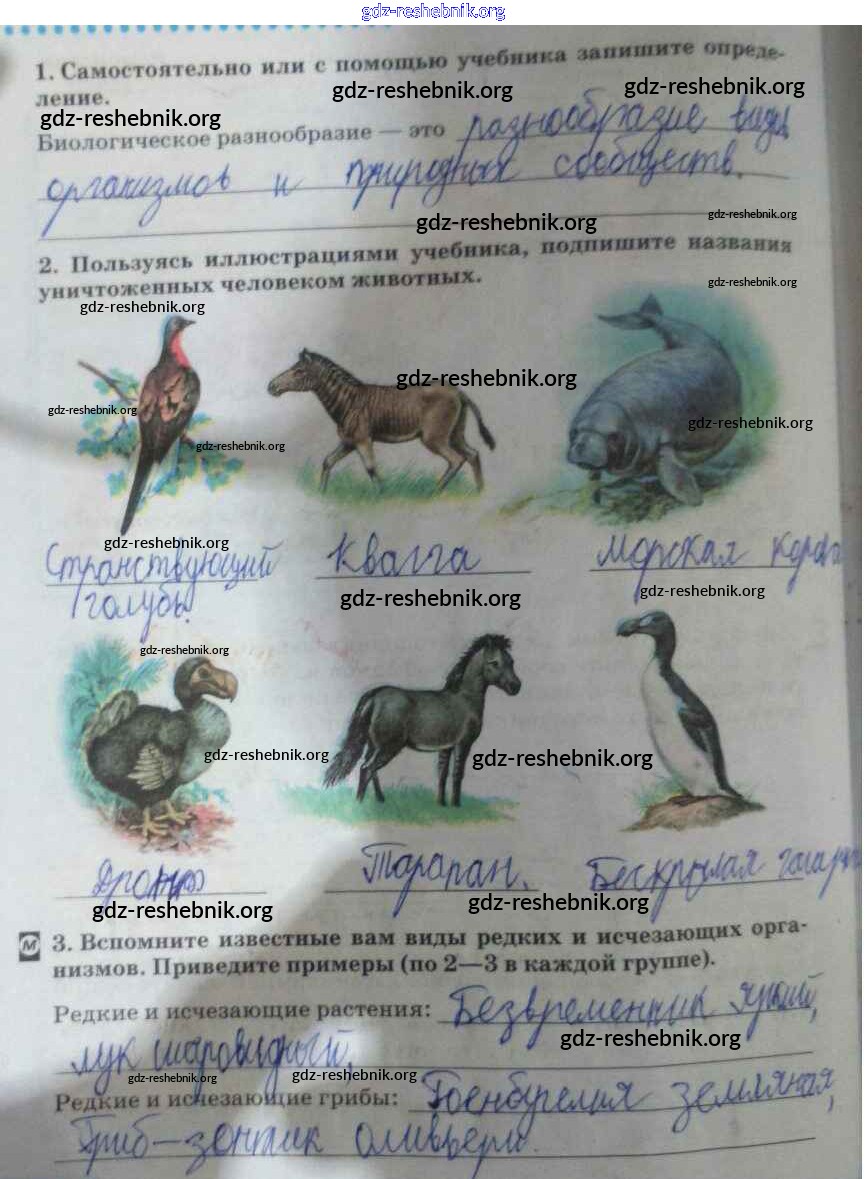 gdz-reshebnik.org
1. Самостоятельно или с помощью учебника запишите опреде-
ление.
gdz-reshebnik.org gdz-reshebnik.org
gdz-reshebnik.org
Биологическое разнообразие — это разнообразие виды
организмов и природных сообществ.
gdz-reshebnik.org gdz-reshebnik.org
2. Пользуясь иллюстрациями учебника, подпишите названия
уничтоженных человеком животных.
gdz-reshebnik.org
gdz-reshebnik.org
gdz-reshebnik.org
gdz-reshebnik.org
gdz-reshebnik.org
gdz-reshebnik.org
gdz-reshebnik.org
Странствующий Квагга Морская корова
голубь.
gdz-reshebnik.org
gdz-reshebnik.org
gdz-reshebnik.org
gdz-reshebnik.org
gdz-reshebnik.org
Дронт Тарапан. Бескрылая
gdz-reshebnik.org gdz-reshebnik.org
М 3. Вспомните известные вам виды редких и исчезающих орга-
низмов. Приведите примеры (по 2—3 в каждой группе).
Редкие и исчезающие растения: Безвременник яркий,
gdz-reshebnik.org
лук шаровидный,
gdz-reshebnik.org gdz-reshebnik.org
Редкие и исчезающие грибы: Гоенбуелия земляная,
Гриб-зонтик оливьери.